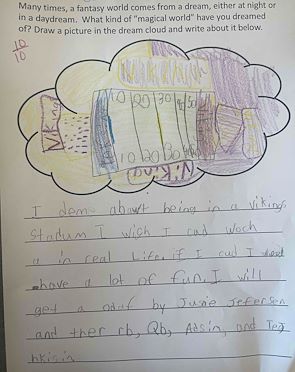 Many times, a fantasy world comes from a dream, either at night or
in a daydream. What kind of "magical world" have you dreamed
of? Draw a picture in the dream cloud and write about it below.
10
10
Viking
10 20 30
Viking
I about being in a viking
Stadum I wich I cud woch
a in real Life. if I cud I
have a lot of fun. I will
get a by Jusie Jefersen
and ther rb, Qb, Adsin, and Tej
hkisin